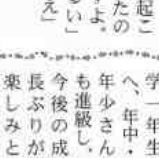 起こ
たの
すよ。
い」
え」
学一年生
へ、年中・
年少さん
も進級し、
今後の成
長ぶりが
楽しみと